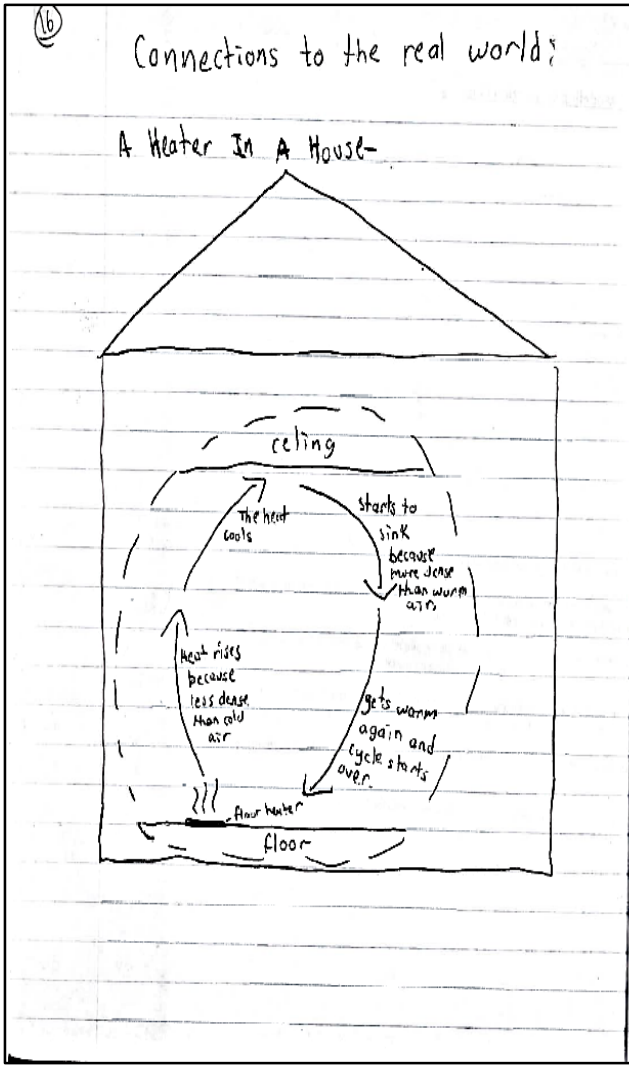 16
Connections to the real world:
A Heater In A House-
celing
The heat
cools
starts to
sink
because
more dense
than warm
air.
Heat rises
because
less dense
than cold
air
gets warm
again and
cycle starts
over.
floor heater
floor